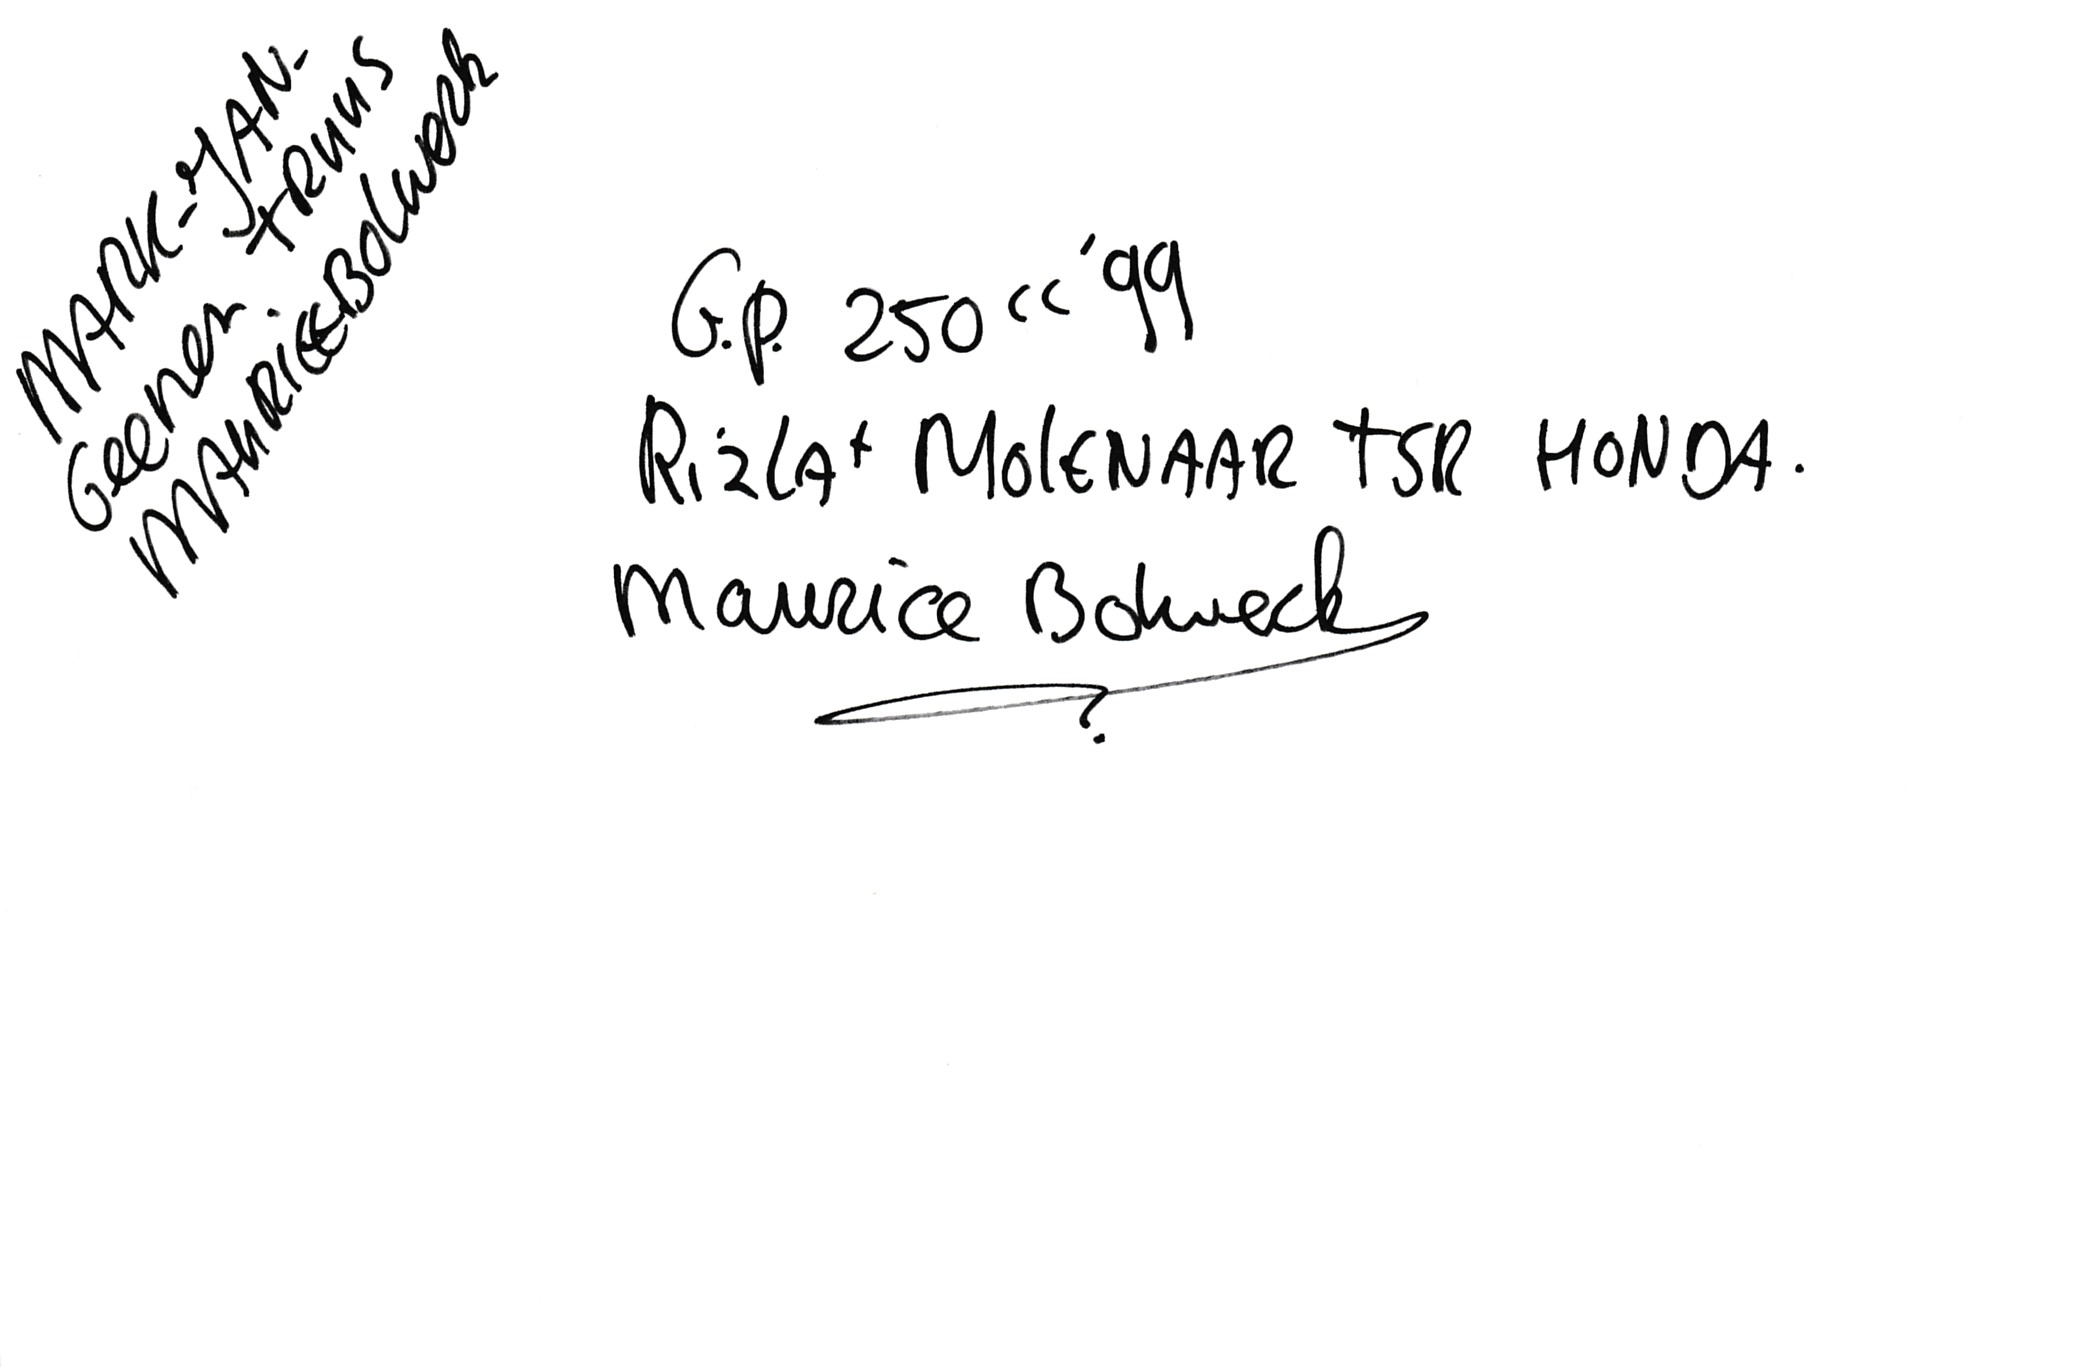 MARK-JAN-
TRUUS
Geener.
MAURICE BOLWERK
G.P. 250cc '99
RizLA+ MOLENAAR TSR HONDA.
Maurice Bolwerk
?